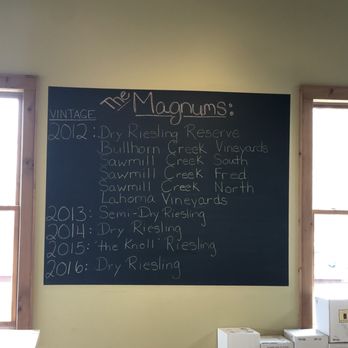 The Magnums:
VINTAGE
2012: Dry Riesling Reserve
Bullhorn Creek Vineyards
Sawmill Creek South
Sawmill Creek Fred
Sawmill Creek North
Lahoma Vineyards
2013: Semi-Dry Riesling
2014: Dry Riesling
2015: "the Knoll" Riesling
2016: Dry Riesling